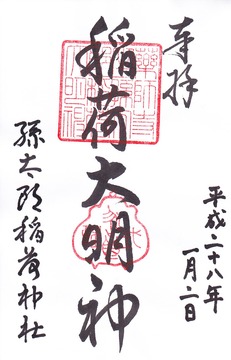 奉拝
稲荷大明神
平成二十八年
一月二日
孫太郎稲荷神社